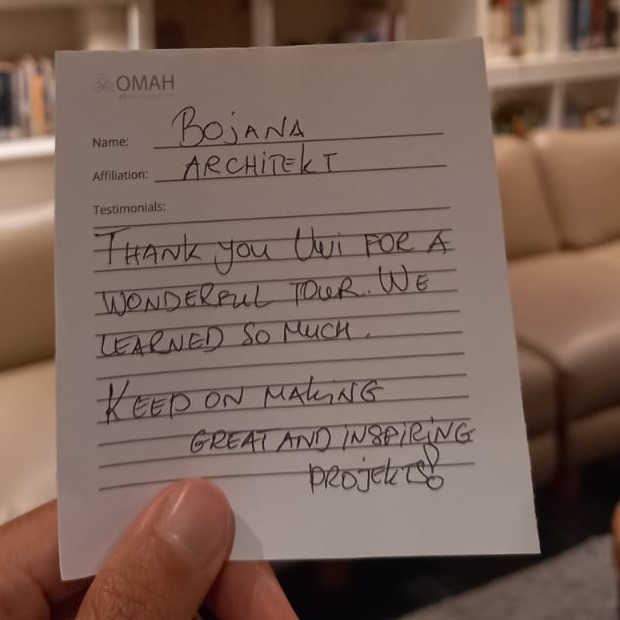 OMAH
Name: BOJANA
Affiliation: ARCHITEKT
Testimonials:
THANK YOU UWI FOR A
WONDERFUL TOUR. WE
LEARNED SO MUCH.
KEEP ON MAKING
GREAT AND INSPIRING
PROJEKTS!